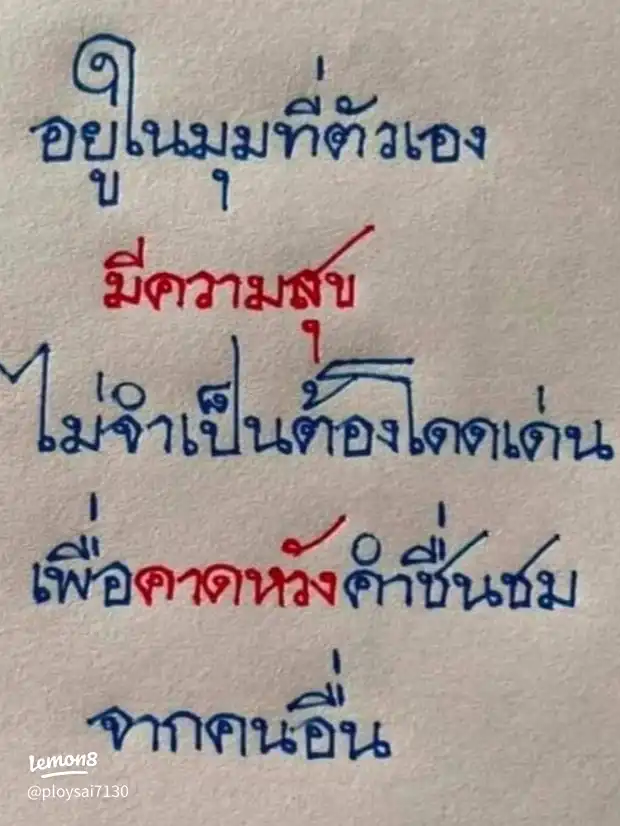 อยู่ในมุมที่ตัวเอง
มีความสุข
ไม่จำเป็นต้องโดดเด่น
เพื่อคาดหวังคำชื่นชม
จากคนอื่น
lemon8
@ploysai7130